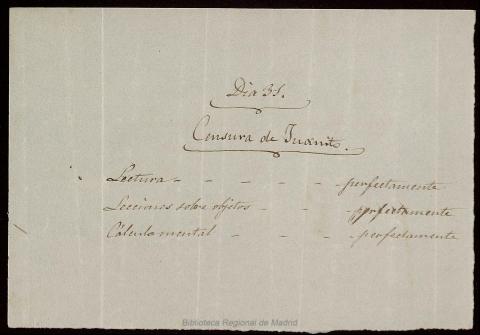 Día 31.
Censura de Juanito.
Lectura - - - - - perfectamente
Lecciones sobre objetos - - - perfectamente
Cálculo mental - - - - perfectamente
Biblioteca Regional de Madrid